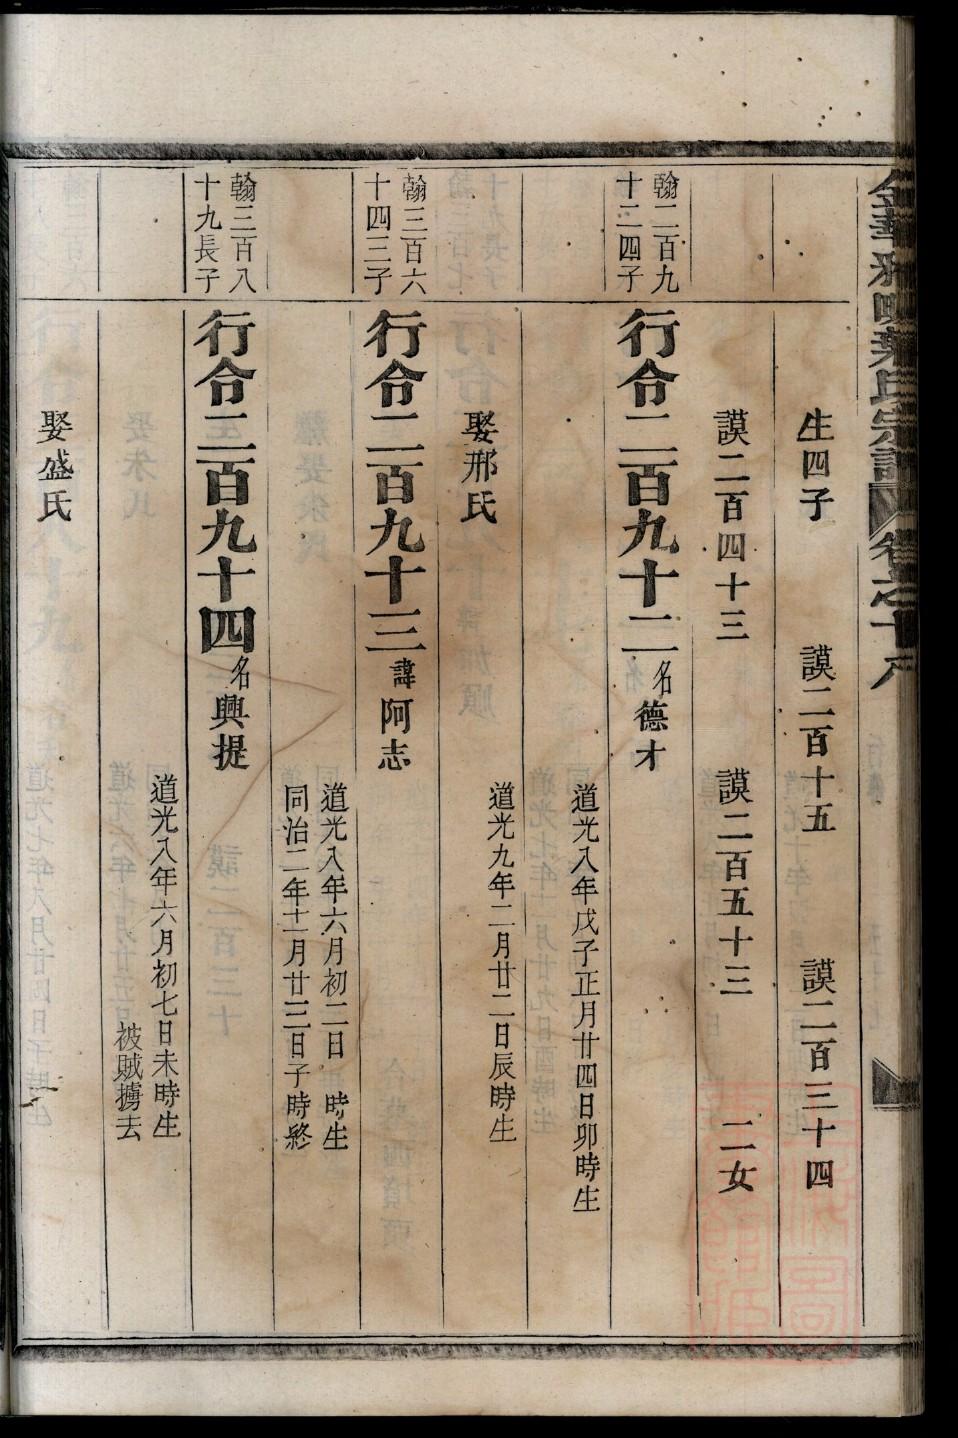 生四子 謨二百十五 謨二百三十四
謨二百四十三 謨二百五十三 二女
翰二百九
十二四子
行令二百九十二名德才
道光八年戊子正月廿四日卯時生
娶邢氏 道光九年二月廿二日辰時生
翰三百六
十四三子
行令二百九十三諱阿志
道光八年六月初二日 時生
同治二年十一月廿三日子時終
翰三百八
十九長子
行令二百九十四名興提
道光八年六月初七日未時生
被賊擄去
娶盛氏